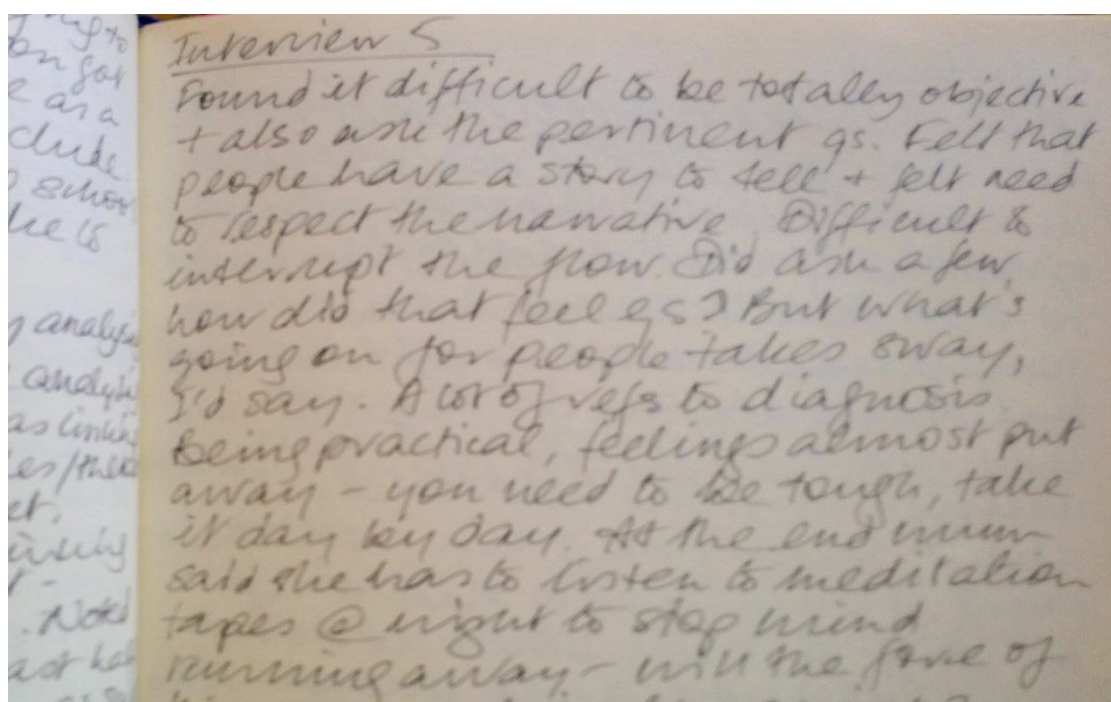 Interview 5
Found it difficult to be totally objective
+ also ask the pertinent qs. Felt that
people have a story to tell + felt need
to respect the narrative. Difficult to
interrupt the flow. Did ask a few
how did that feel qs? But what's
going on for people takes sway,
I'd say. A lot of refs to diagnosis
Being practical, feelings almost put
away - you need to be tough, take
it day by day. At the end mum
said she has to listen to meditation
tapes @ night to stop mind
running away - with the of
analysis
analysis
as
et.
Noted